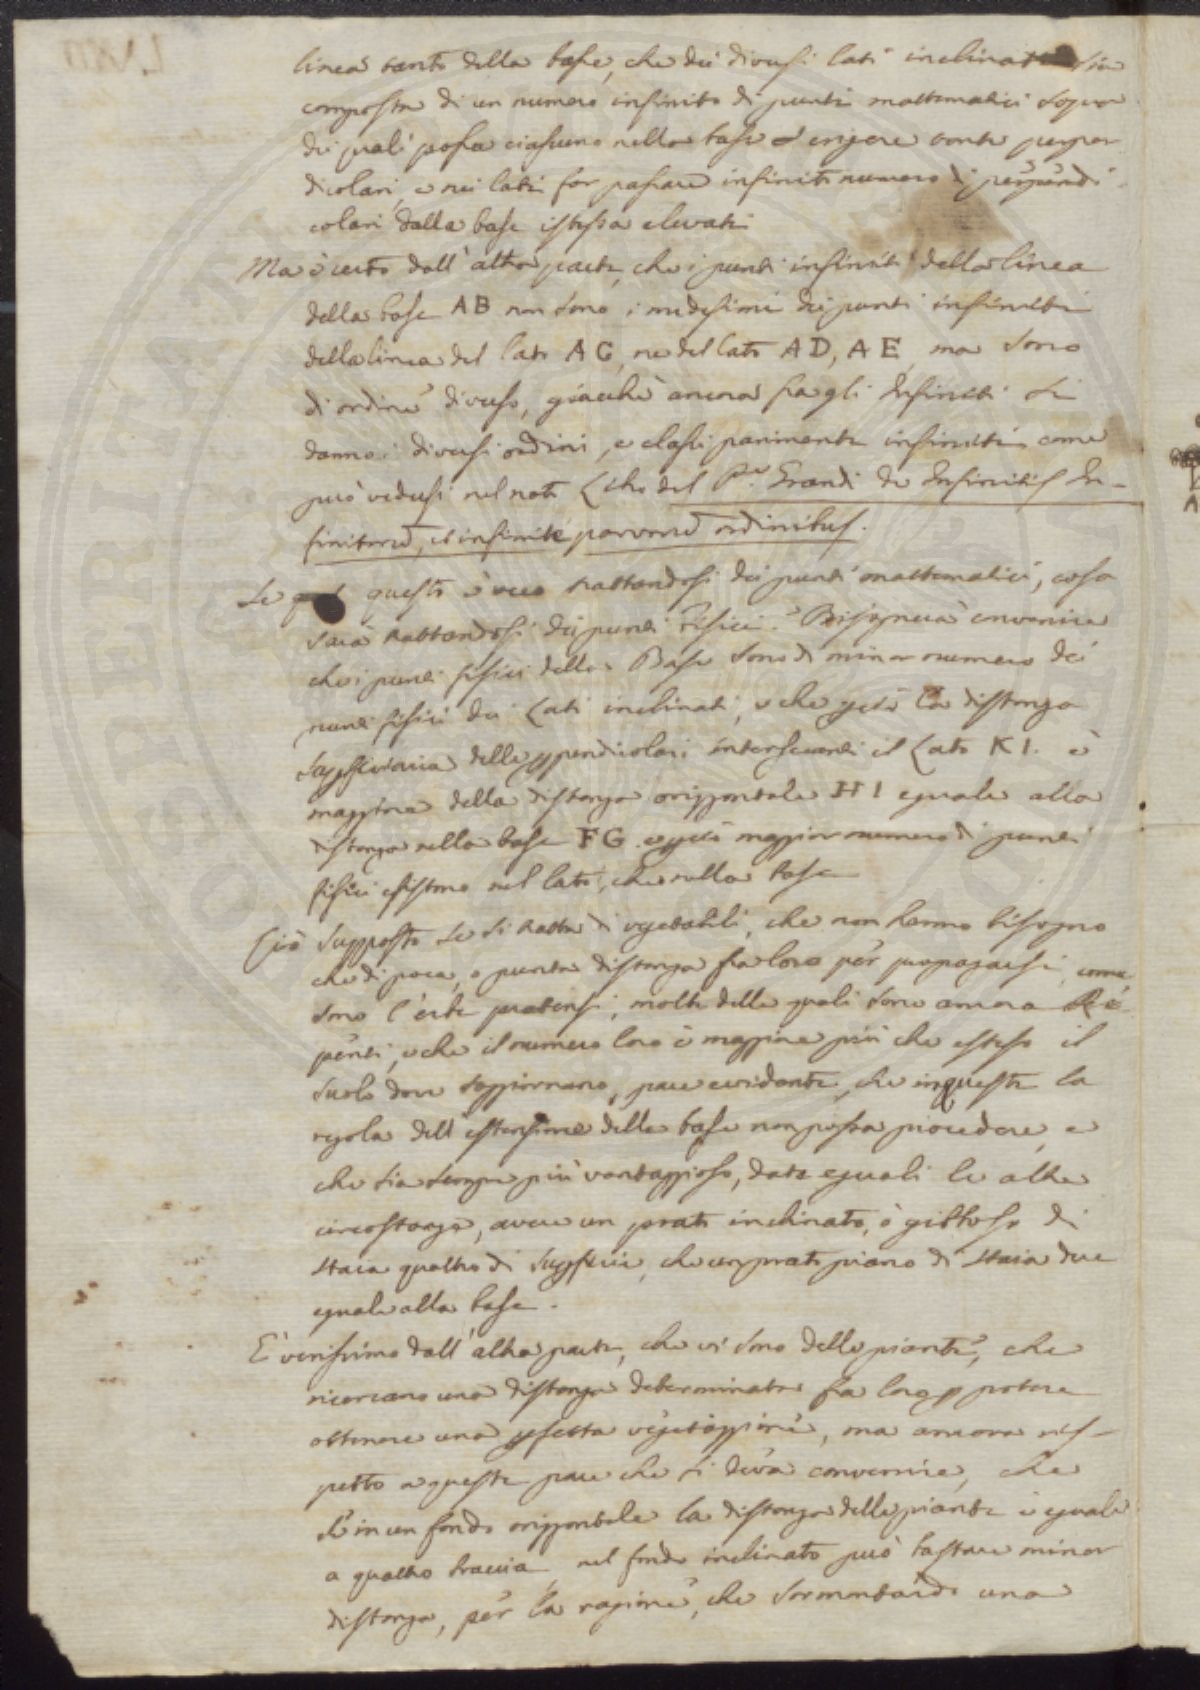 linea tanto della base, che dei diversi lati inclinati sia
composta di un numero infinito di punti mattematici sopra
dei quali possa ciascuno nella base erigere tante perpen-
dicolari, e nei lati far passare infinito numero di perpendi-
colari dalla base istessa elevati
Ma è certo dall'altra parte, che i punti infiniti della linea
della base AB non sono i medesimi dei punti infiniti
della linea del lato AC, ne del lato AD, AE, ma sono
di ordine diverso, giacchè ancora fra gli Infiniti si
danno i diversi ordini, e classi parimente infiniti come
può vedersi nel noto Libro del P.re Grandi de Infinitis In-
finitorum, et infinite parvorum ordinibus.
Se questo è vero trattandosi dei punti mattematici, cosa
sarà trattandosi dei punti Fisici? Bisognerà convenire
che i punti fisici della Base sono di minor numero dei
punti fisici dei Lati inclinati, e che però la distanza
superficiaria delle pperpendicolari intersecanti il Lato KI. è
maggiore della distanza orizzontale HI eguale alla
distanza nella base FG. e però maggior numero di punti
fisici esistono nel lato, che nella base
Ciò supposto se si tratta di vegetabili, che non hanno bisogno
che di poca, o punta distanza fra loro per propagarsi, come
sono l'erbe pratensi, molte delle quali sono ancora Re-
penti, e che il numero loro è maggiore più che esteso il
suolo dove soggiornano, pare evidente, che in queste la
regola dell'estensione della base non possa procedere, e
che sia sempre più vantaggioso, date eguali le altre
circostanze, avere un prato inclinato, o gibboso di
staia quattro di superficie, che un prato piano di staia due
eguale alla base.
È verissimo dall'altra parte, che vi sono delle piante, che
ricercano una distanza determinata fra loro p potere
ottenere una pfetta vegetazzione, ma ancora ris-
petto a queste pare che si deva convenire, che
se in un fondo orizzontale la distanza delle piante è eguale
a quattro braccia, nel fondo inclinato può bastare minor
distanza, per la ragione, che sormontando una